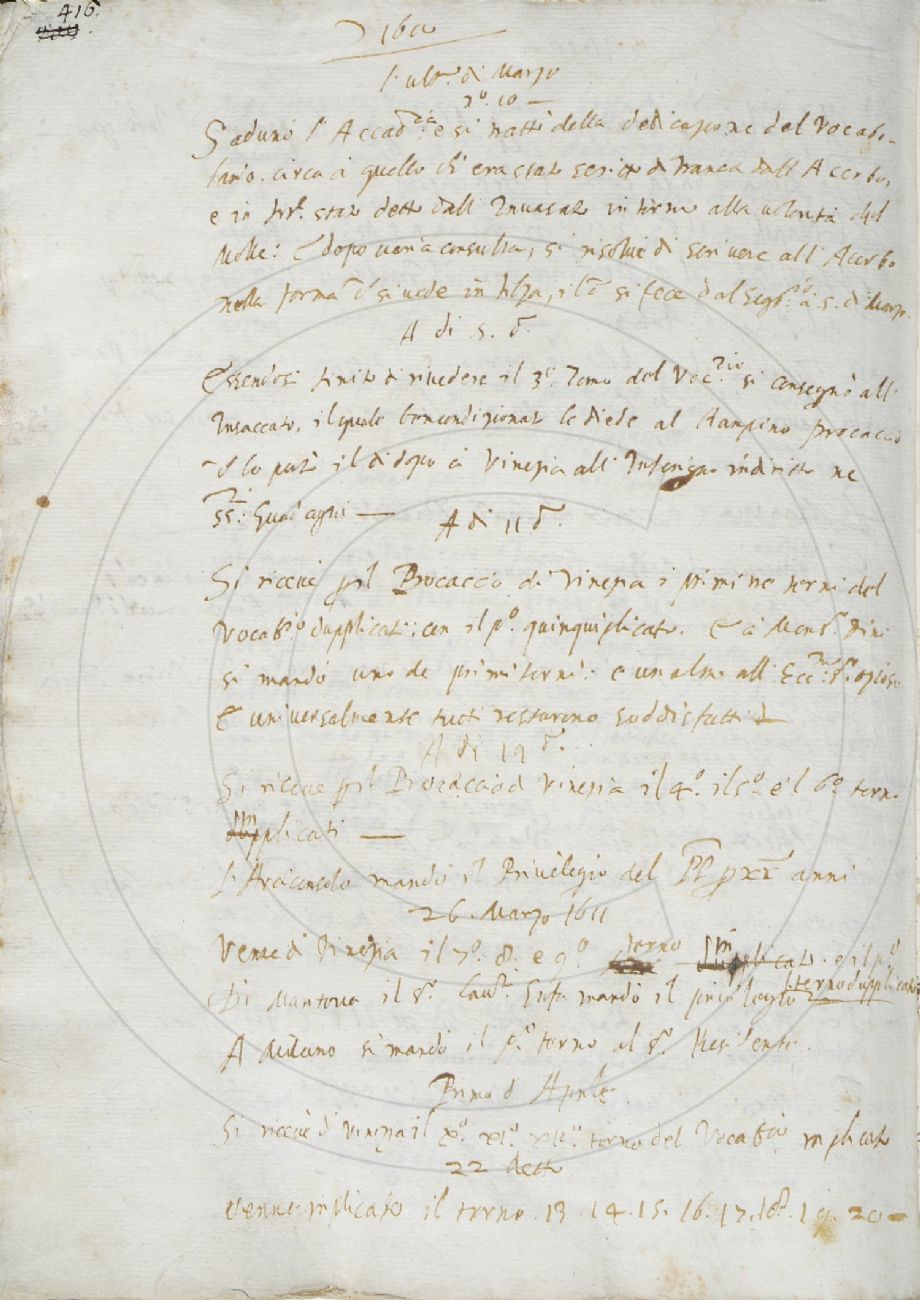 416.
1610
l'ult.º di Marzo
nº. 10 —
S'adunò l'Accad.ia e si trattò della dedicazione del Vocabo-
lario, circa à quello ch'era stato scritto di Franca dall'Acerbo,
e in stato detto dall' Inuasato intorno alla volontà del
Molle: E dopo varia consulta, si risolué di scrivere all' Acerbo
nella forma ch' si uede in filza, il si fece dal Seg.º à 5. di Marzo.
A di 5. d.
Essendosi finito di riuedere il 3º. Tomo del Voc.rio si consegnò all'
Insaccato, il quale bencondizionato lo diede al Rampino procaccio
lo portò il di dopo à Vinezia all' Inferigno indiritto ne
SS.ri Guadagni —
A di 11 d.
Si riceuè pil Procaccio di Vinezia i primi tre terni del
Vocab.rio dupplicati; con il pº. quinquiplicato. E à Mons.r Dini
si mandò uno de primi terni: e un altro all' Ecc.mo S.r
E uniuersalmente tutti restorono soddisfatti —
A di 19 d.
Si riceué pil Procaccio di Vinezia il 4º. il 5º. e'l 6º. terno
triplicati —
L'Arciconsolo mandò il Priuilegio del PP p xx anni
26. Marzo 1611
Venne di Vinezia il 7º. 8. e 9º terno triplicati. e il pº.
terno dupplicato
Di Mantoua il S.r Cau.r mandò il priuilegio
A Milano si mandò il pº. terno al S.r Residente.
Primo d'Aprile
Si riceuè di Vinezia il Xº. XIº. XIIº. terno del Vocab.rio triplicato
22 detto
Venne triplicato il terno. 13 .14. 15. 16. 17. 18. 19. 20 —